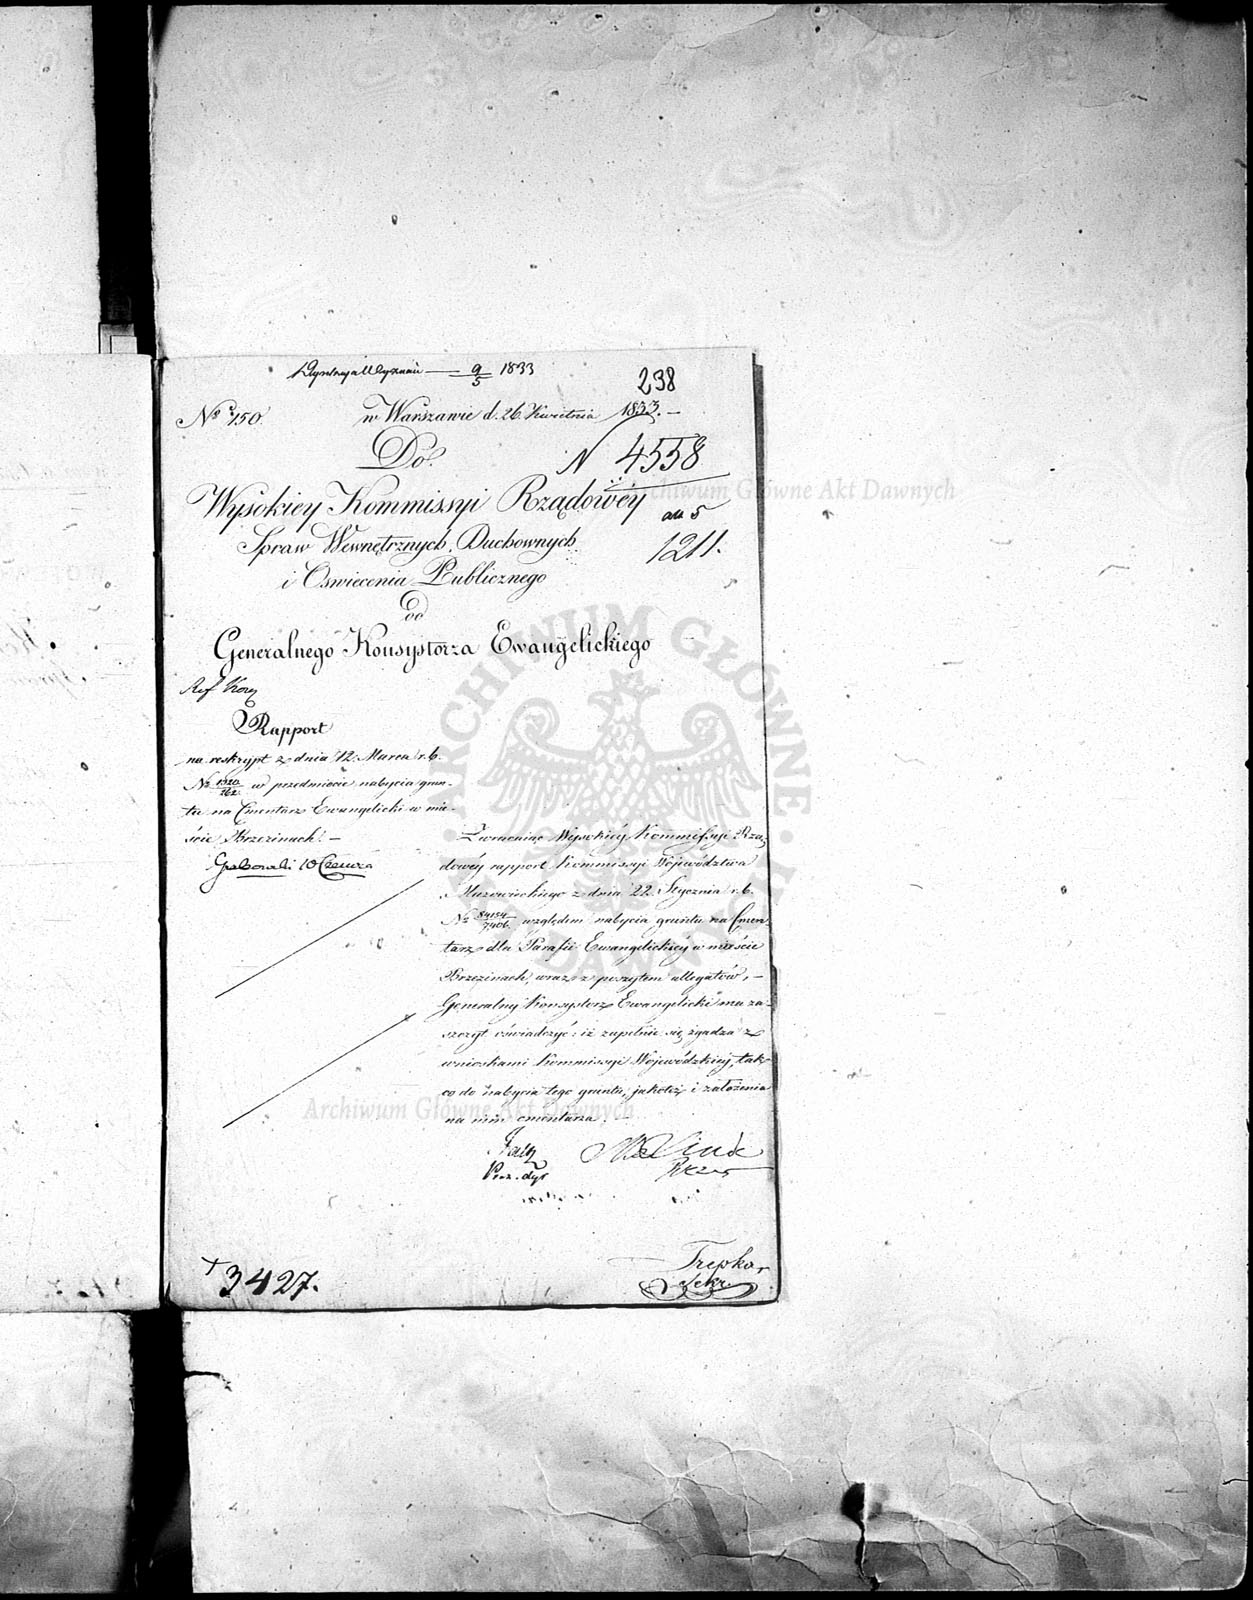 9/5 1833
238
No 150. w Warszawie d. 26 Kwietnia 1833. –
Do
N 4558
Wysokiey Kommissyi Rządowéy
Spraw Wewnętrznych, Duchownych
1211.
i Oswiecenia Publicznego
od
Generalnego Konsystorza Ewangelickiego
Rapport
na reskrypt z dnia 12. Marca r. b.
No 1320/262. w przedmiocie nabycia grun-
tu na Cmentarz Ewangelicki w mie-
ście Brzezinach. –
Zwracaiąc Wysokiéy Kommissyi Rzą-
dowéy rapport Kommissyi Województwa
Mazowieckiego z dnia 22. Stycznia r. b.
No 84154/7406. względem nabycia gruntu na Cmen-
tarz dla Parafii Ewangelickiéy w mieście
Brzezinach, wraz z poszytem allegatów, –
Generalny Konsystorz Ewangelicki ma za-
szczyt oświadczyć: iż zupełnie się zgadza z
wnioskami Kommissyi Wojewódzkiéy, tak
co do nabycia tego gruntu, jakotéż i założenia
na nim cmentarza. –
Prez. dyr
Trepka,
Sekr.
3427.
Archiwum Główne Akt Dawnych
ARCHIWUM GŁÓWNE AKT DAWNYCH
Archiwum Główne Akt Dawnych